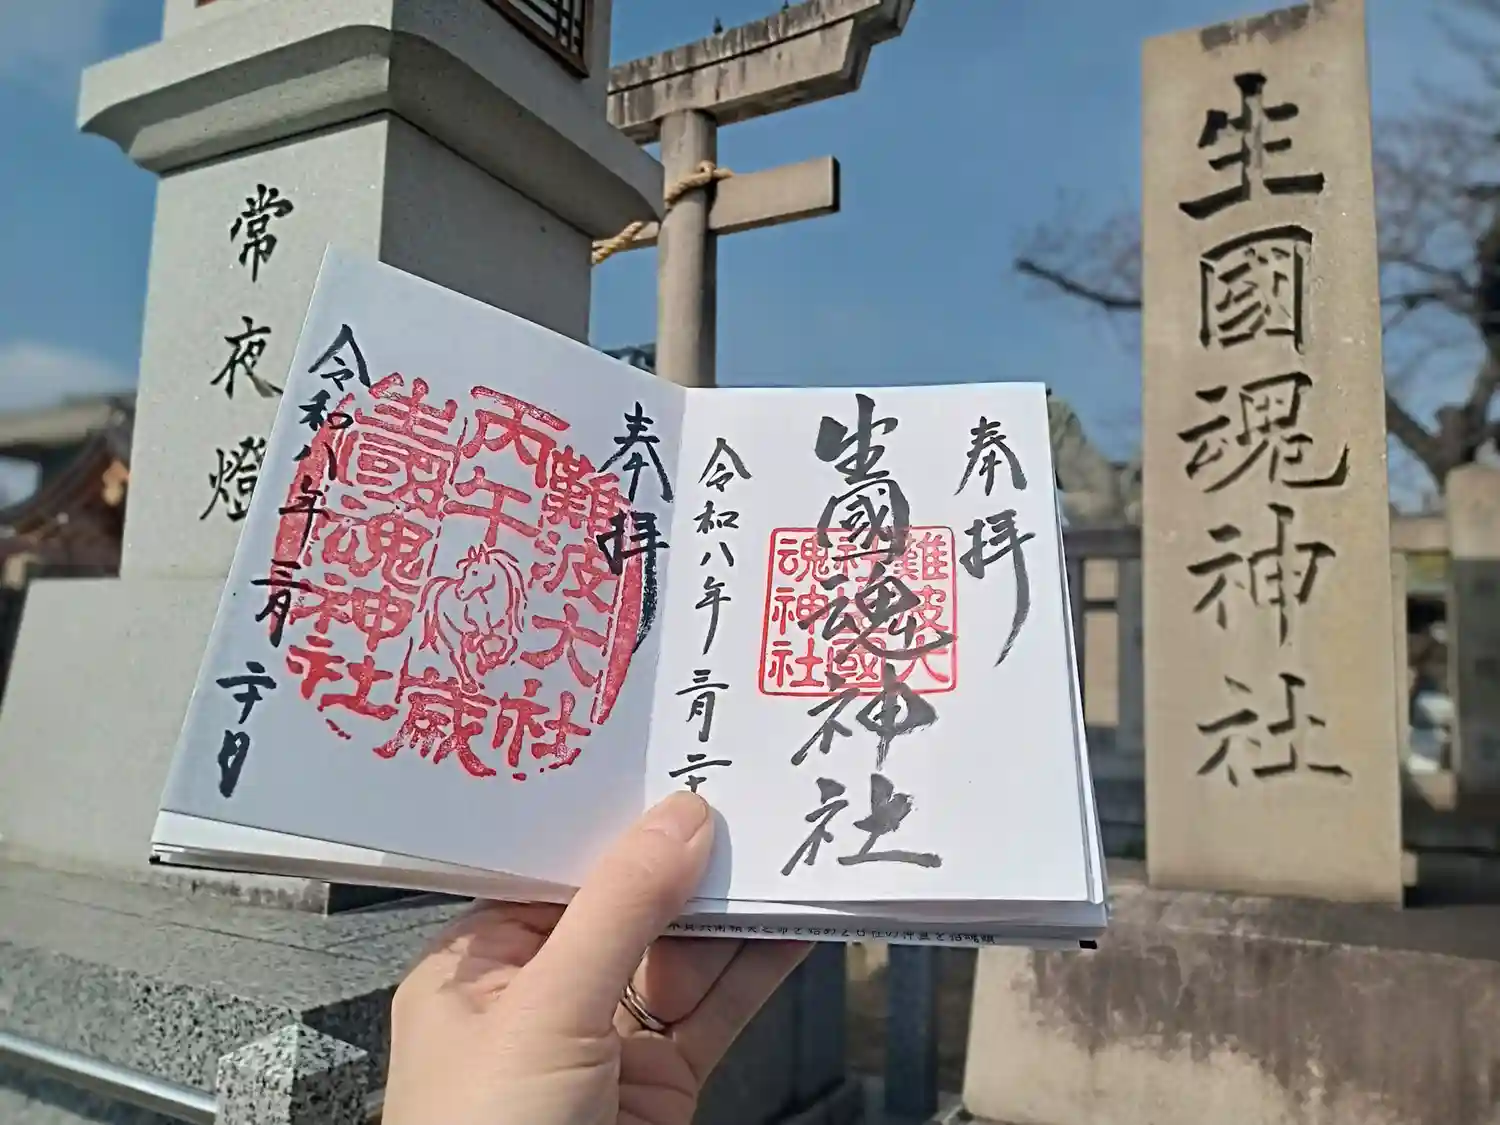 生國魂神社
常夜燈
奉拝
生國魂神社
難波大社
生國魂神社
令和八年三月二十
奉拝
難波大社
丙午歳
生國魂神社
令和八年三月二十日